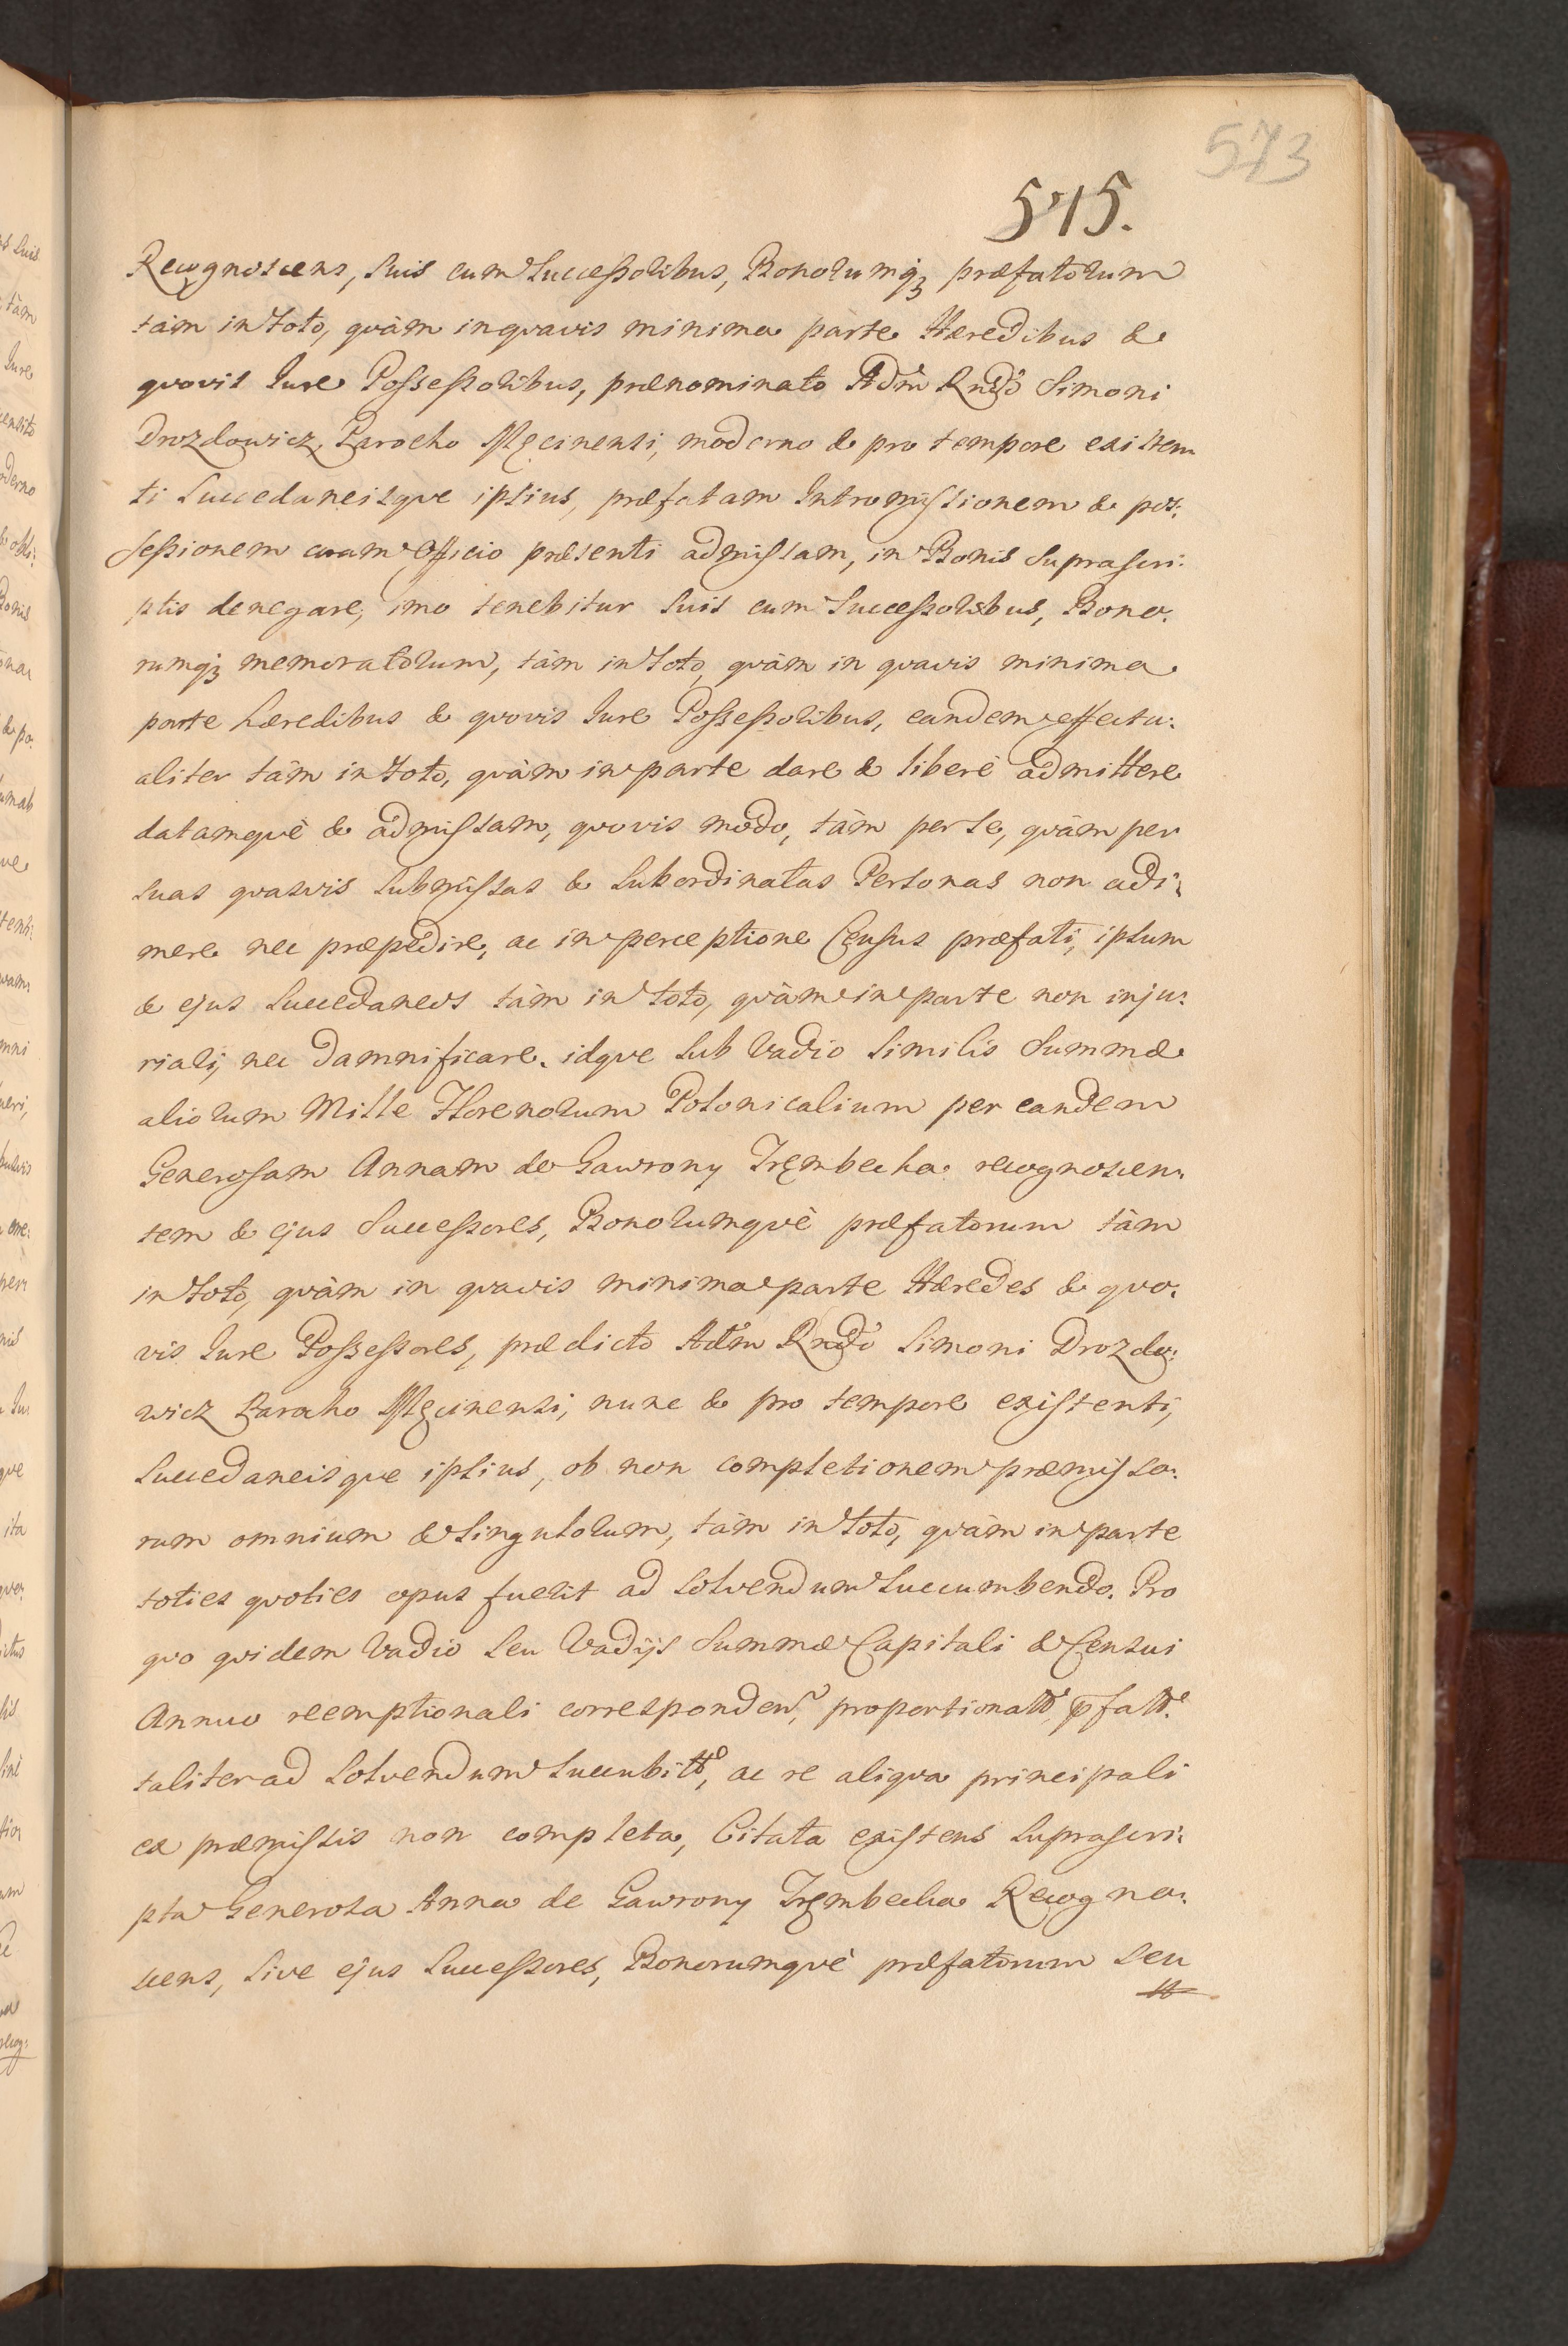 573
575.
Recognoscens, suis cum Successoribus, Bonorumq3 præfatorum
tàm in toto, qvàm in qvavis minima parte Hæredibus &
qvovis Iure Possessoribus, prænominato Adm Rndo Simoni
Drozdowicz, Parocho Męcinensi, moderno & pro tempore existen
ti Succedaneisqve ipsius, præfatam Intromissionem & pos:
sessionem coram Officio præsenti admissam, in Bonis Suprascri:
ptis denegare, imo tenebitur suis cum Successoribus, Bono:
rumq3 memoratorum, tàm in toto, qvàm in qvavis minima
parte hæredibus & qvovis Iure Possessoribus, eandem effectu:
aliter tàm in toto, qvàm in parte dare & liberè admittere
datamqvè & admissam, qvovis modo, tàm per se, qvàm per
suas qvasvis submissas & subordinatas Personas non adi:
mere nec præpedire, ac in perceptione Census præfati, ipsum
& ejus Succedaneos tàm in toto, qvàm in parte non inju:
riari, nec damnificare, idqve sub Vadio similis Summæ
aliorum Mille Florenorum Polonicalium per eandem
Generosam Annam de Gawrony Tręmbecka recognoscen:
tem & ejus Successores, Bonorumqvè præfatorum tàm
in toto, qvàm in qvavis minima parte Hæredes & qvo:
vis Iure Possessores, prædicto Adm Rndo Simoni Drozdo:
wicz Parocho Męcinensi, nunc & pro tempore existenti,
Succedaneisqve ipsius, ob non completionem præmisso:
rum omnium & singulorum, tàm in toto, qvàm in parte
toties qvoties opus fuerit ad solvendum succumbendo. Pro
qvo qvidem Vadio seu Vadijs Summæ Capitali & Censui
Annuo reemptionali corresponden, proportionatt, pfatt.
taliter ad solvendum succubitt, ac re aliqva principali
ex præmissis non completa, Citata existens suprascri:
pta Generosa Anna de Gawrony Tręmbecka Recogno:
scens, sive ejus Successores, Bonorumqvè præfatorum seu